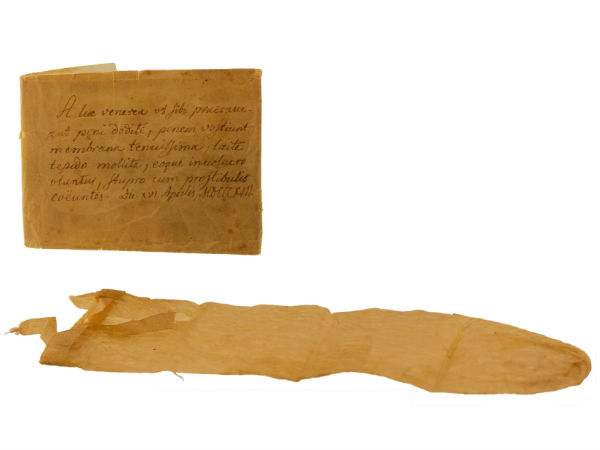 A lue venerea ut sibi praecave-
ant peni dediti, penem vestiunt
membrana tenuissima, lacte
tepido mollita, eoque involucro
utuntur, stupro cum prostibulis
coeuntes. Die XVI Aprilis